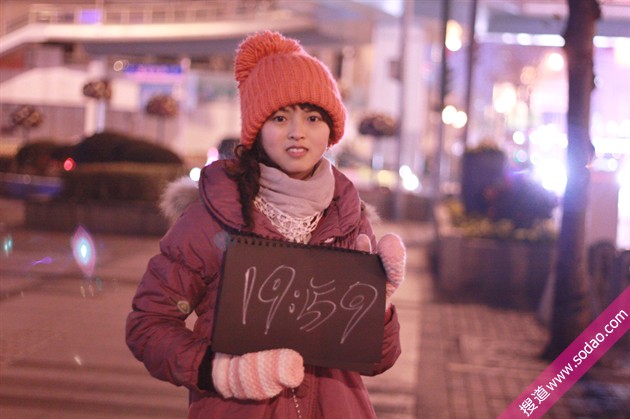 19:59
搜道www.sodao.com